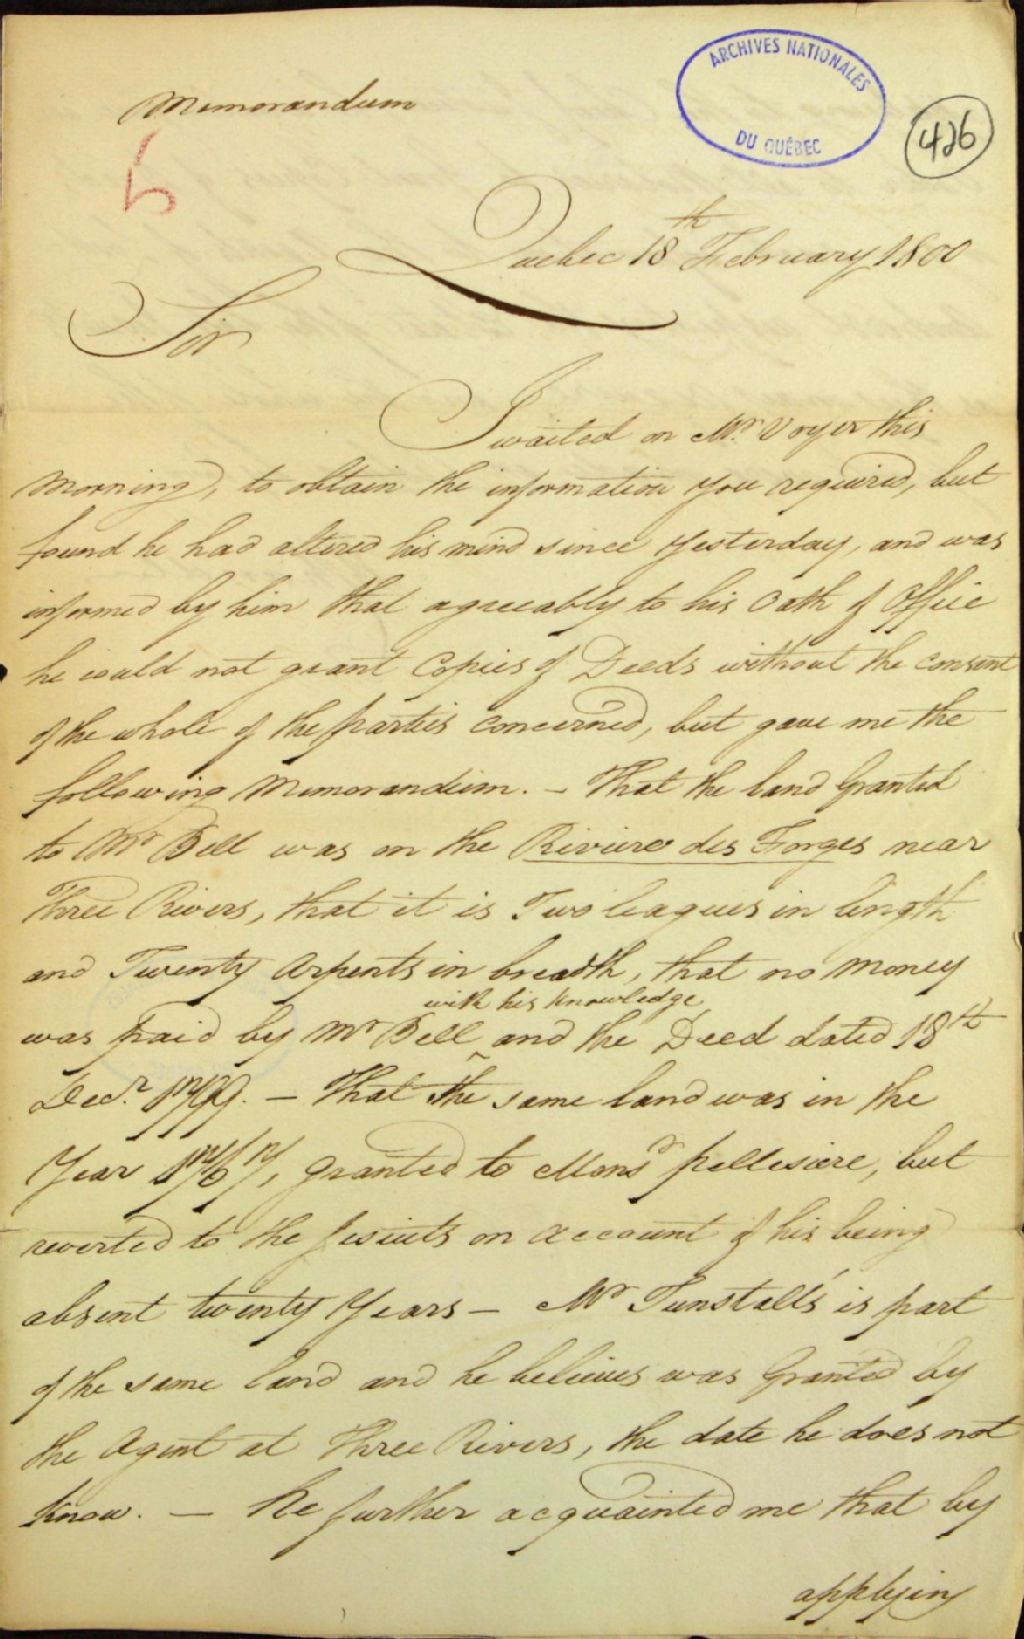 Memorandum
ARCHIVES NATIONALES
DU QUÉBEC
426
Quebec 18th February 1800
Sir
I waited on Mr. Voyer this
Morning, to obtain the information you required, but
found he had altered his mind since Yesterday, and was
informed by him that agreeably to his Oath of Office
he could not grant Copies of Deeds without the consent
of the whole of the parties concerned, but gave me the
following Memorandum. — That the land Granted
to Mr Bell was on the Riviere des Forges near
Three Rivers, that it is Two leagues in length
and Twenty Arpents in breadth, that no money
with his knowledge
was paid by Mr Bell ^ and the Deed dated 18th
Decr. 1799. — That the same land was in the
Year 1767, granted to Monsr pellesiere, but
reverted to the Jesuits on account of his being
absent twenty Years — Mr Tunstall's is part
of the same land and he believes was Granted by
the Agent at Three Rivers, the date he does not
know. — he further acquainted me that by
applying